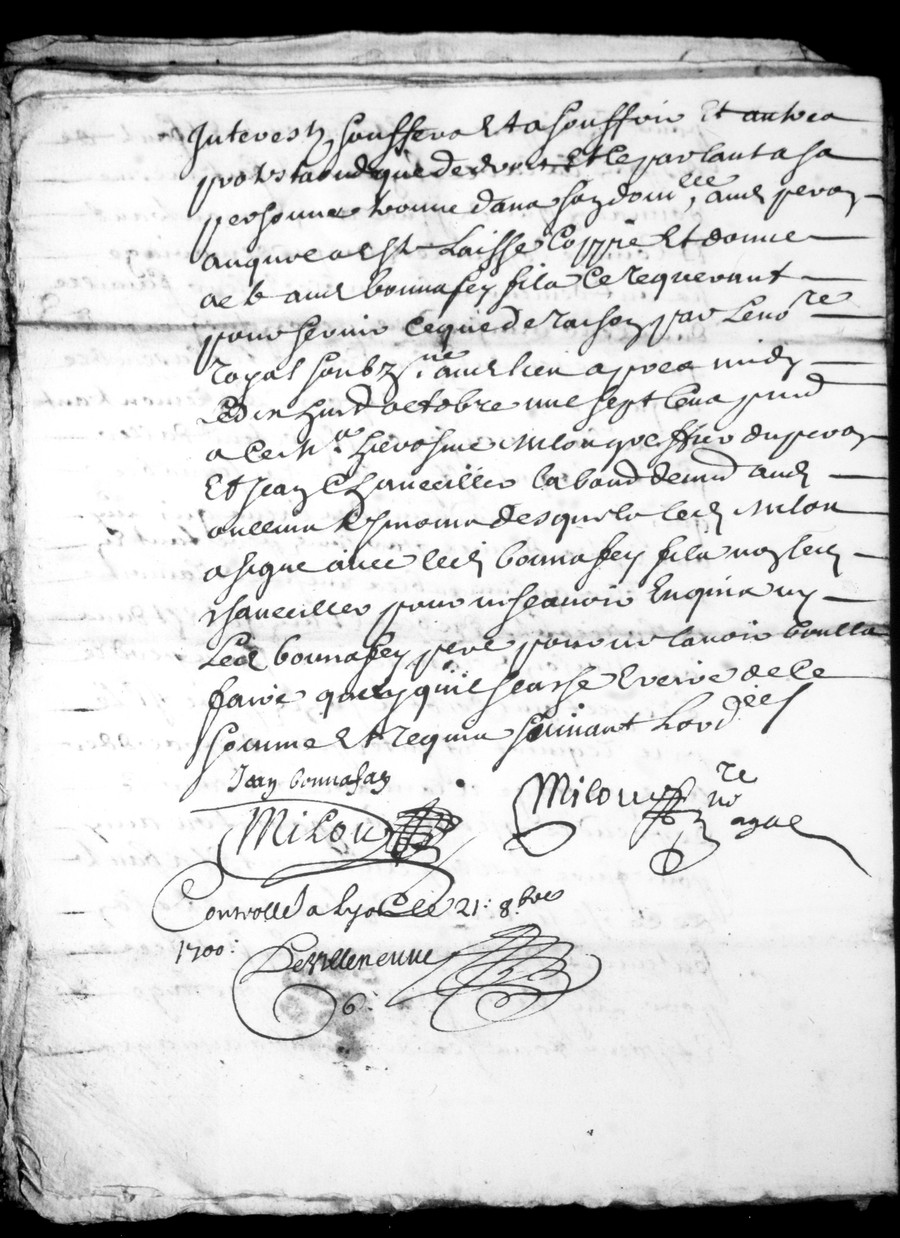 Interestz, souffertz et a souffrir Et autres
protstant que de droit Et ce parlant a sa
personne trouvé dans son domille, aud peron
auquel a este Laissé Coppie Et donné
acte aud bonnafey fils Ce requerant
pour servir ce que de raison par Le no.re
royal soubz.ne aud lieu apres midy
Le dix huict octobre mil sept Cens pnd
a ce M.e hierosme Milon greffier du peron
Et Jean Chanceillier la boud aud
desquels led Milon
a signé avec led bonnafey fils non led
Chanceillier pour ne scavoir Enquis ny
Led bonnafey pere pour ne lavoir voullu
faire quoy quil scache Ecrire de Ce
sommé Et requis suivant Lord.ces
Jean bonnafay
Milon
Milon no.re
royal
Controllé a Lyon le 21: 8bre
1700:
DeVilleneuve